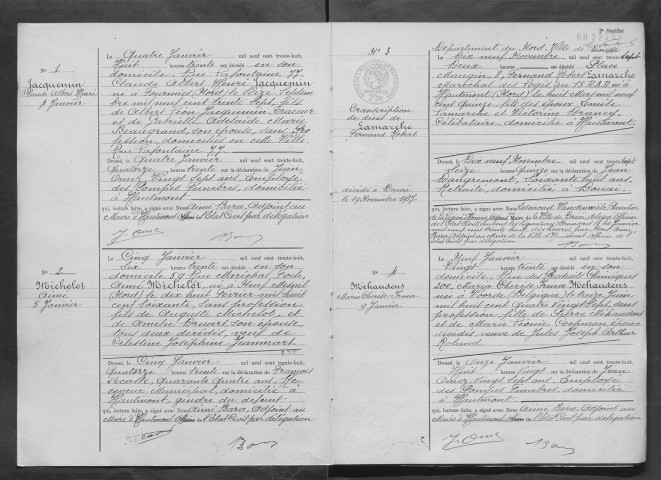 N° 1
Jacquemin
Claude Albert Henri
4 Janvier
Le Quatre Janvier mil neuf cent trente-huit,
Huit heures trente est décédé en son
domicile, Rue Lafontaine 77
Claude Albert Henri Jacquemin
né à (Nord) le Seize Septem
bre mil neuf cent trente Sept, fils
de Albert Léon Jacquemin
et de Gabrielle Adélaïde Marie
Beaugrand, son épouse, sans Pro
fession domiciliés en cette Ville
Rue Lafontaine 77.
Dressé, le Quatre Janvier mil neuf cent trente-huit,
Quatorze heures trente sur la déclaration de Jean
Omer, Vingt Sept ans, Employé
des Pompes Funèbres, domicilié
à Hautmont
qui, lecture faite, a signé avec Nous Aimé Bara, Adjoint au
Maire d'Hautmont Officier de l'Etat Civil par délégation
J. Omer Bara
N° 2
Michelot
Aimé
5 Janvier
Le Cinq Janvier mil neuf cent trente-huit,
Six heures trente est décédé en son
domicile 59 Rue
Aimé Michelot, né à Neuf Mesnil
(Nord) le dix huit Février mil huit
cent soixante, sans profession
fils de Auguste Michelot, et
de Amélie son épouse
tous deux décédés, veuf de
Célestine Joséphine Jeanmart.
Dressé, le Cinq Janvier mil neuf cent trente-huit,
Quatorze heures trente sur la déclaration de François
Quarante Quatre ans, Re
ceveur Municipal, domicilié à
Hautmont, gendre du défunt
qui, lecture faite, a signé avec Nous Aimé Bara, Adjoint au
Maire d'Hautmont Officier de l'Etat Civil par délégation
Bara
N° 3
Transcription
de décès de
Lamarche
Fernand Robert
décédé à Douai
le 19 Novembre 1937
Département du Nord, Ville de Douai
Le Dix neuf Novembre mil neuf cent trente-sept
Deux heures est décédé Place
Maugin 2, Fernand Robert Lamarche
Maréchal des Logis au 15 R.A.D. né à
Hautmont (Nord) le huit
cent Quinze fils des époux Emile
Lamarche et Victorine Brancy
Célibataire domicilié à Hautmont.
Dressé, le Dix neuf Novembre mil neuf cent trente-sept
Seize heures Quinze sur la déclaration de Jean
Soixante huit ans
Retraité, domicilié à Douai
qui, lecture faite, a signé avec Nous Edmond Chevalier
de la Légion d'Honneur, Maire de la Ville de Douai
Bara
N° 4
Mehaudens
Maria Thérèse Irma
9 Janvier
Le Neuf Janvier mil neuf cent trente-huit,
Vingt heures trente est décédée en son
domicile, Rue des Produits Chimiques
Maria Thérèse Irma Mehaudens
née à Belgique, le treize Juin
mil huit cent Quatre Vingt Sept, sans
profession, fille de Pierre Mehaudens
et de Marie Léonie époux
décédés, veuve de Jules Joseph Arthur
Dressé, le Onze Janvier mil neuf cent trente-huit,
Huit heures Vingt sur la déclaration de Jean
Omer, Vingt Sept ans, Employé
des Pompes Funèbres domicilié
à Hautmont
qui, lecture faite, a signé avec Nous Aimé Bara Adjoint au
Maire d'Hautmont Officier de l'Etat Civil par délégation
J. Omer Bara